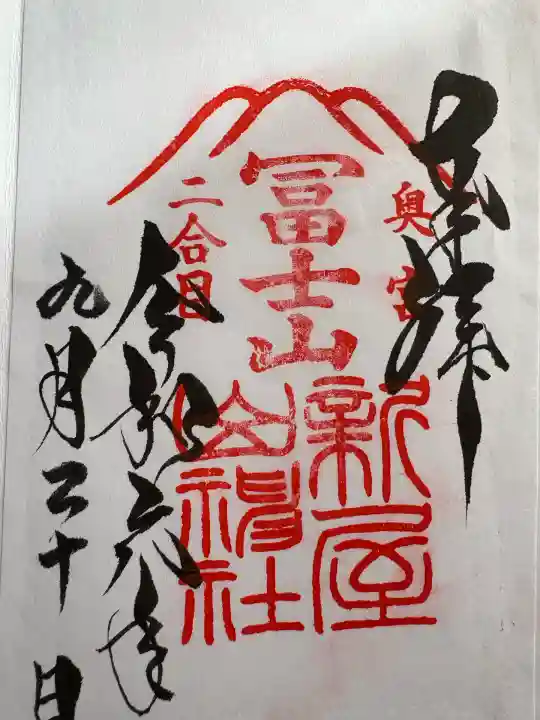 奉拝
奥宮
冨士山
二合目
新屋
山神社
令和六年
九月二十日